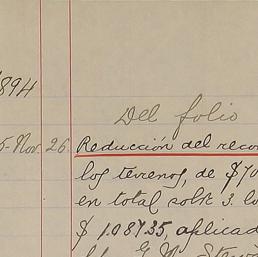 1894
Del folio
5-Nov. 26. Reducción del reco
los terrenos, de $70
en total sobre 3. lo
$ 1.087.35, aplicad
G. M. Stew